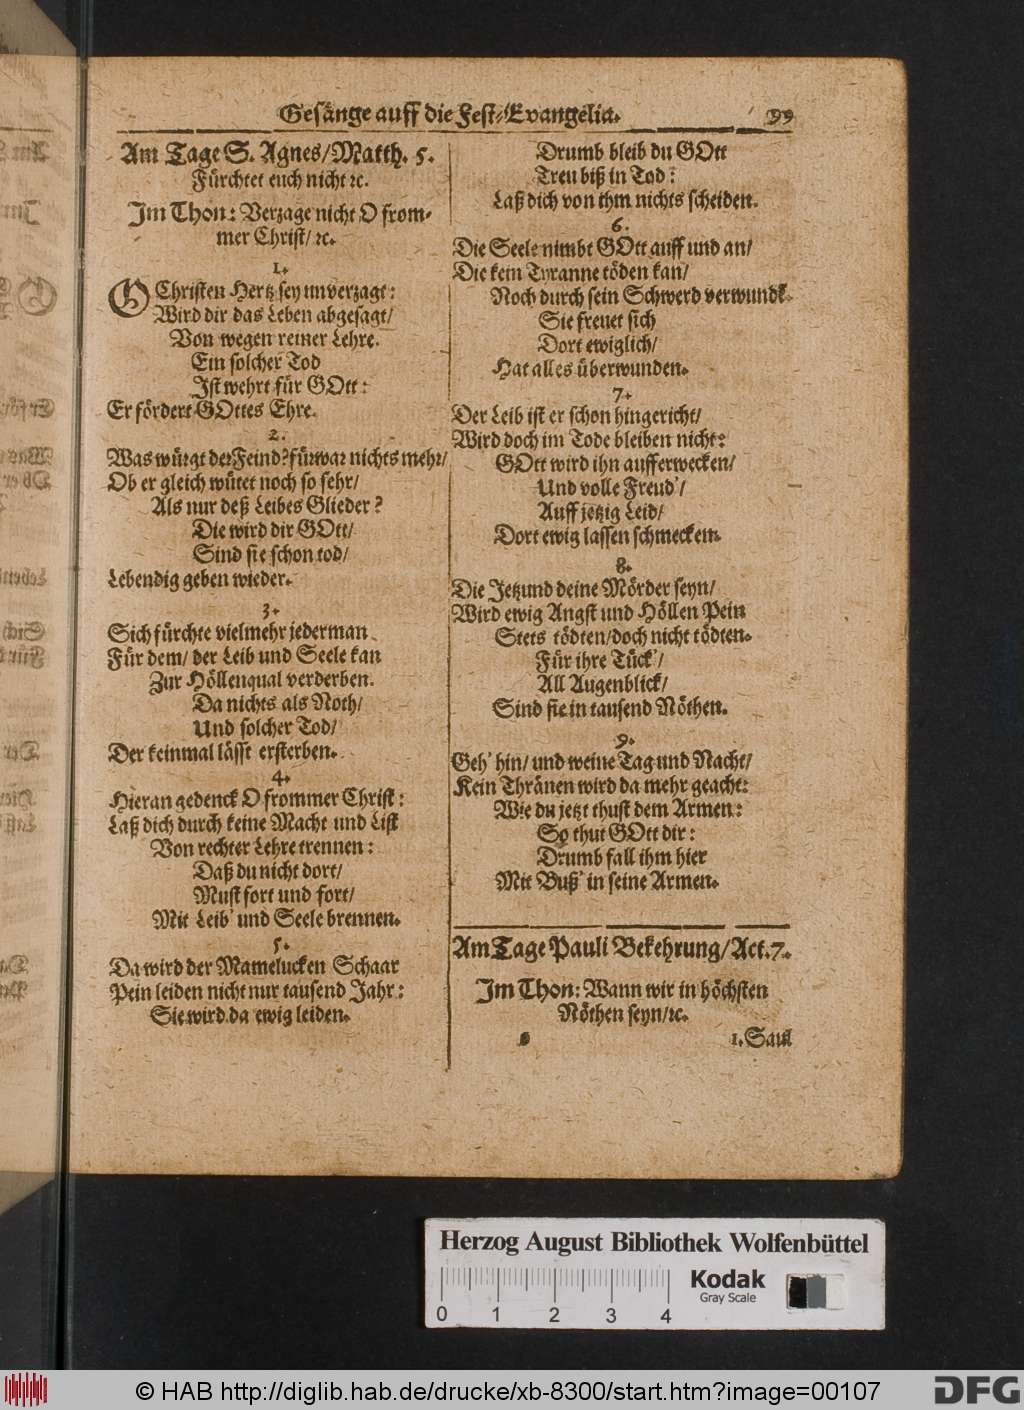 Gesänge auff die Fest-Evangelia. 99
Am Tage S. Agnes/Matth. 5.
Fürchtet euch nicht ꝛc.
Im Thon: Verzage nicht O from-
mer Christ/ ꝛc.
1.
O Christen Hertz sey unverzagt:
Wird dir das Leben abgesagt/
Von wegen reiner Lehre.
Ein solcher Tod
Ist wehrt für GOtt:
Er fördert GOttes Ehre.
2.
Was würgt der Feind? fürwar nichts mehr/
Ob er gleich wütet noch so sehr/
Als nur deß Leibes Glieder?
Die wird dir GOtt/
Sind sie schon tod/
Lebendig geben wieder.
3.
Sich fürchte vielmehr jederman
Für dem/ der Leib und Seele kan
Zur Höllenqual verderben.
Da nichts als Noth/
Und solcher Tod/
Der keinmal lässt ersterben.
4.
Hieran gedenck O frommer Christ:
Laß dich durch keine Macht und List
Von rechter Lehre trennen:
Daß du nicht dort/
Must fort und fort/
Mit Leib' und Seele brennen.
5.
Da wird der Mamelucken Schaar
Pein leiden nicht nur tausend Jahr:
Sie wird da ewig leiden.
Drumb bleib du GOtt
Treu biß in Tod:
Laß dich von ihm nichts scheiden.
6.
Die Seele nimbt GOtt auff und an/
Die kein Tyranne töden kan/
Noch durch sein Schwerd verwundt.
Sie freuet sich
Dort ewiglich/
Hat alles überwunden.
7.
Der Leib ist er schon hingericht/
Wird doch im Tode bleiben nicht:
GOtt wird ihn aufferwecken/
Und volle Freud'/
Auff jetzig Leid/
Dort ewig lassen schmecken.
8.
Die Jetzund deine Mörder seyn/
Wird ewig Angst und Höllen Pein
Stets tödten/doch nicht tödten.
Für ihre Tück'/
All Augenblick/
Sind sie in tausend Nöthen.
9.
Geh' hin/ und weine Tag und Nacht/
Kein Thränen wird da mehr geacht:
Wie du jetzt thust dem Armen:
So thut GOtt dir:
Drumb fall ihm hier
Mit Buß' in seine Armen.
Am Tage Pauli Bekehrung/Act. 7.
Im Thon: Wann wir in höchsten
Nöthen seyn/ꝛc.
1. Saul
Herzog August Bibliothek Wolfenbüttel
Kodak
Gray Scale
0 1 2 3 4
© HAB http://diglib.hab.de/drucke/xb-8300/start.htm?image=00107
DFG